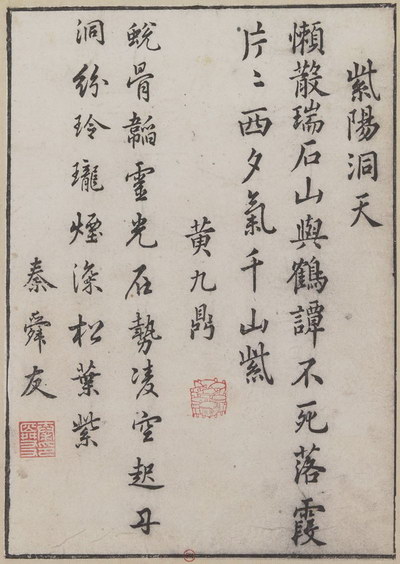 紫陽洞天
懶散瑞石山與鶴譚不死落霞
片〻西夕氣千山紫
黄九鼎
蛻骨韜靈光石勢凌空起丹
洞紛玲瓏煙染松葉紫
秦舜友